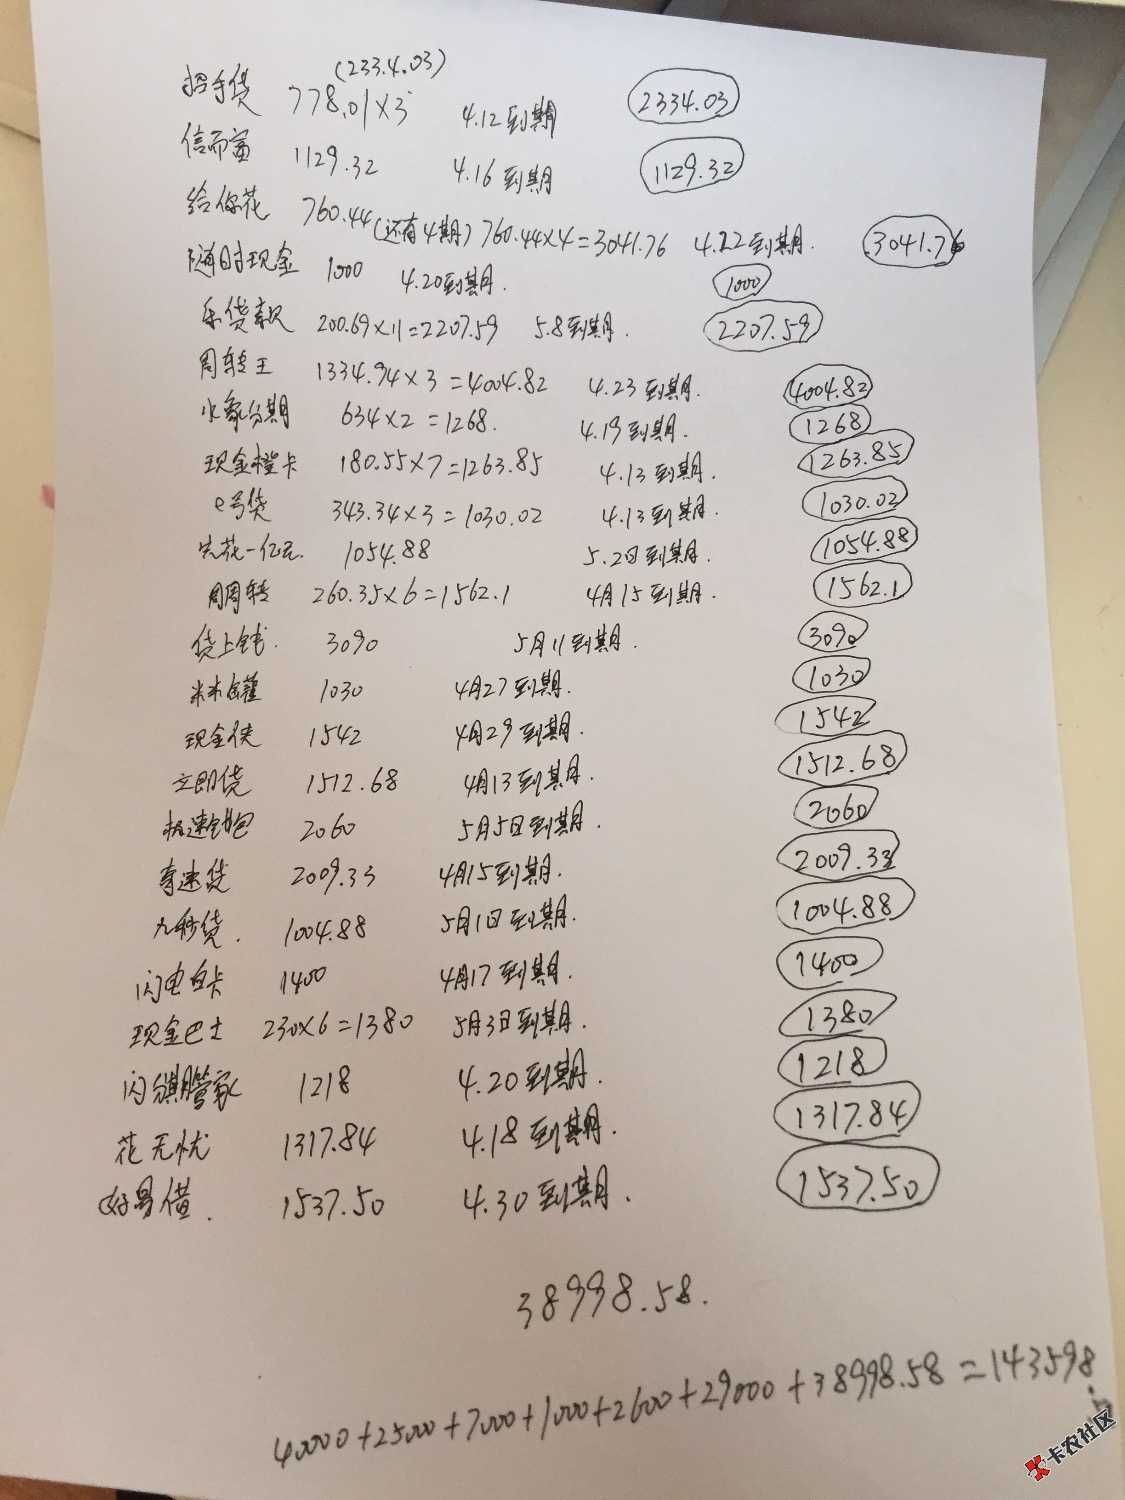 (233.4.03)
招手贷 778.01×3 4.12到期 2334.03
信而富 1129.32 4.16到期 1129.32
给你花 760.44(还有4期) 760.44×4=3041.76 4.22到期. 3041.76
随时现金 1000 4.20到期. 1000
200.69×11=2207.59 5.8到期. 2207.59
周转王 1334.94×3=4004.82 4.23到期. 4004.82
水象分期 634×2=1268. 4.19到期. 1268
现金橙卡 180.55×7=1263.85 4.13到期. 1263.85
e号贷 343.34×3=1030.02 4.13到期. 1030.02
先花一亿元. 1054.88 5.2日到期. 1054.88
周周转 260.35×6=1562.1 4月15到期. 1562.1
贷上钱. 3090 5月11到期. 3090
米米罐 1030 4月27到期. 1030
现金侠 1542 4月29到期. 1542
立即贷 1512.68 4月13到期. 1512.68
极速钱包 2060 5月5日到期. 2060
奇速贷 2009.33 4月15到期. 2009.33
九秒贷. 1004.88 5月1日到期. 1004.88
闪电白卡 1400 4月17到期. 1400
现金巴士 230×6=1380 5月3日到期. 1380
闪分期管家 1218 4.20到期. 1218
花无忧 1317.84 4.18到期. 1317.84
好易借. 1537.50 4.30到期. 1537.50
38998.58.
40000+25000+7000+1000+2600+29000+38998.58=143598.
卡农社区